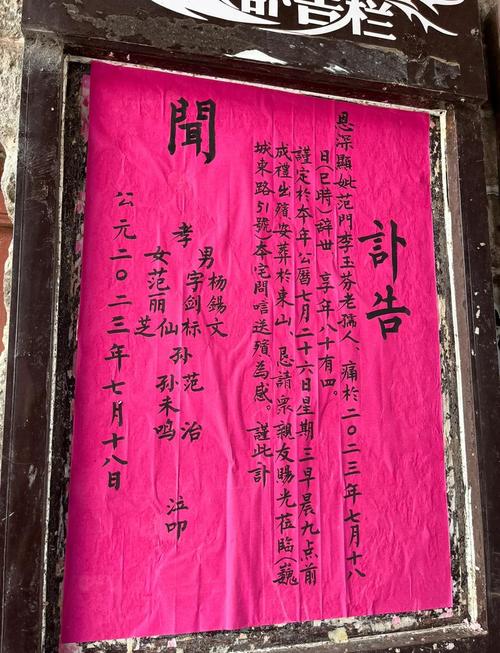 讣告栏
訃告
恩深顯妣范門李玉芬老孺人、痛於二〇二三年七月十八
日(巳時)辞世 享年八十有四。
謹定於本年公曆七月二十六日星期三早晨九点前
成禮出殯安葬於東山、恳請衆親友賜光莅臨(巍
城東路51號)本宅問唁送殯為感。謹此訃
聞
孝
男 杨錫文
宇剑标
女范丽仙
芝
孙 范治
孙未鸣
泣叩
公元二〇二三年七月十八日